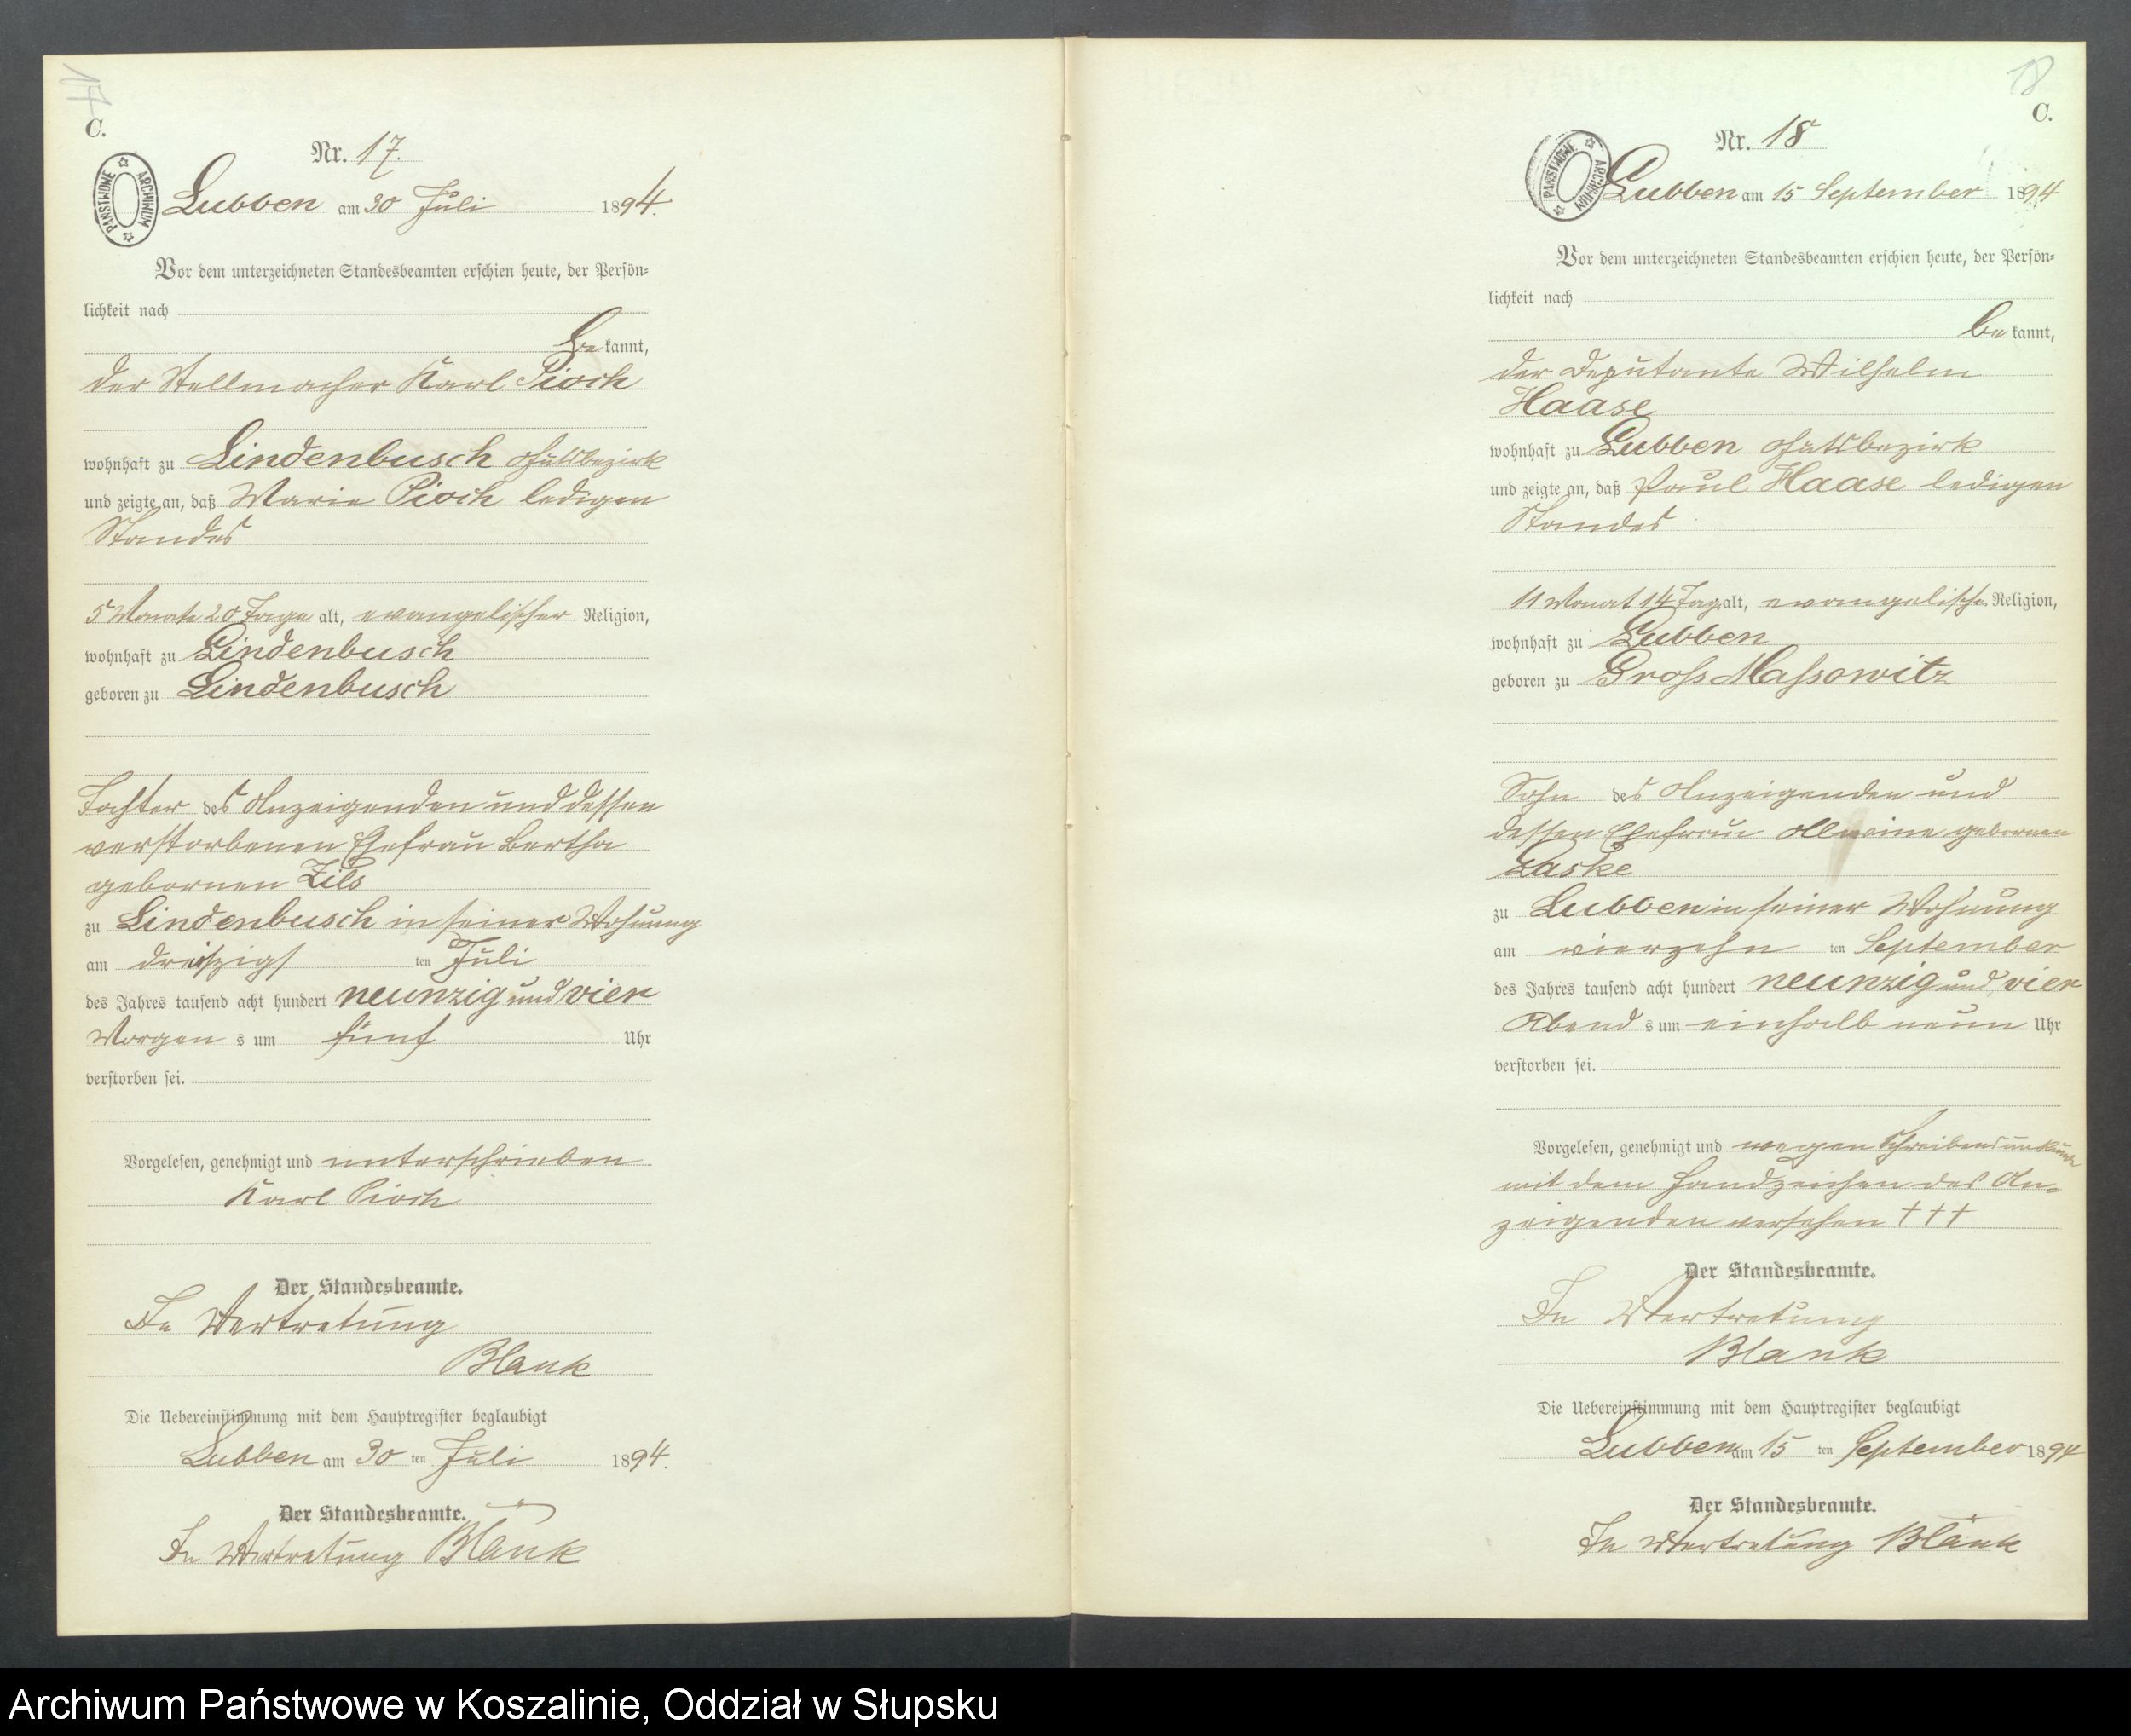 17
C.
Nr. 17.
PAŃSTWOWE ARCHIWUM
Lubben am 30 Juli 1894.
Vor dem unterzeichneten Standesbeamten erschien heute, der Persön-
lichkeit nach
be kannt,
der Stellmacher Karl Pioch
wohnhaft zu Lindenbusch Gutsbezirk
und zeigte an, daß Marie Pioch ledigen
Standes
5 Monate 20 Tage alt, evangelischer Religion,
wohnhaft zu Lindenbusch
geboren zu Lindenbusch
Tochter des Anzeigenden und dessen
verstorbenen Ehefrau Bertha
gebornen Zils
zu Lindenbusch in seiner Wohnung
am dreißigs ten Juli
des Jahres tausend acht hundert neunzig und vier
Morgen s um fünf Uhr
verstorben sei.
Vorgelesen, genehmigt und unterschrieben
Karl Pioch
Der Standesbeamte.
In Vertretung
Blank
Die Uebereinstimmung mit dem Hauptregister beglaubigt
Lubben am 30 ten Juli 1894.
Der Standesbeamte.
In Vertretung Blank
18
C.
Nr. 18
PAŃSTWOWE ARCHIWUM
Lubben am 15 September 1894
Vor dem unterzeichneten Standesbeamten erschien heute, der Persön-
lichkeit nach
be kannt,
der Deputante Wilhelm
Haase
wohnhaft zu Lubben Gutsbezirk
und zeigte an, daß Paul Haase ledigen
Standes
11 Monat 14 Tag alt, evangelische Religion,
wohnhaft zu Lubben
geboren zu Gross Massowitz
Sohn des Anzeigenden und
dessen Ehefrau gebornen
Laske
zu Lubben in seiner Wohnung
am vierzehn ten September
des Jahres tausend acht hundert neunzig und vier
Abend s um einhalb neun Uhr
verstorben sei.
Vorgelesen, genehmigt und wegen Schreibensunkunde
mit dem Handzeichen des An-
zeigenden versehen +++
Der Standesbeamte.
In Vertretung
Blank
Die Uebereinstimmung mit dem Hauptregister beglaubigt
Lubben am 15 ten September 1894
Der Standesbeamte.
In Vertretung Blank
Archiwum Państwowe w Koszalinie, Oddział w Słupsku